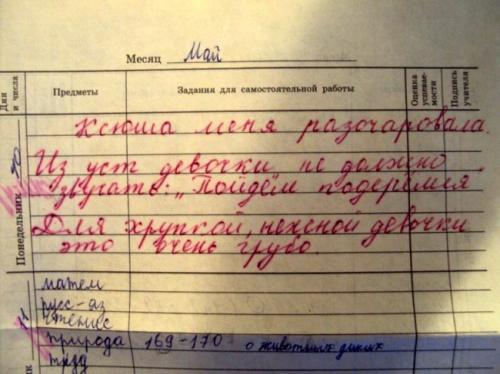 Месяц Май
Дни и числа
Предметы
Задания для самостоятельной работы
Оценка успеваемости
Подпись учителя
Понедельник
Ксюша меня разочаровала.
Из уст девочки не должно
звучать: „Пойдём подерёмся
Для хрупкой, нежной девочки
это очень грубо.
матем
русс-яз
чтение
природа 169-170 о животных диких
труд